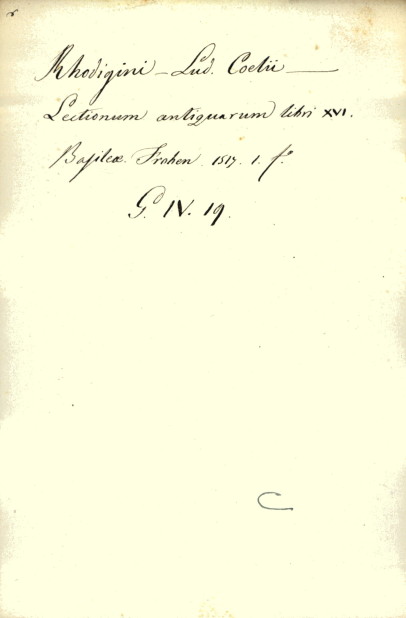 Rhodigini – Lud. Coelii –
Lectionum antiquarum libri XVI.
Basileæ. Froben. 1517. 1. fº
G. IV. 19.
C